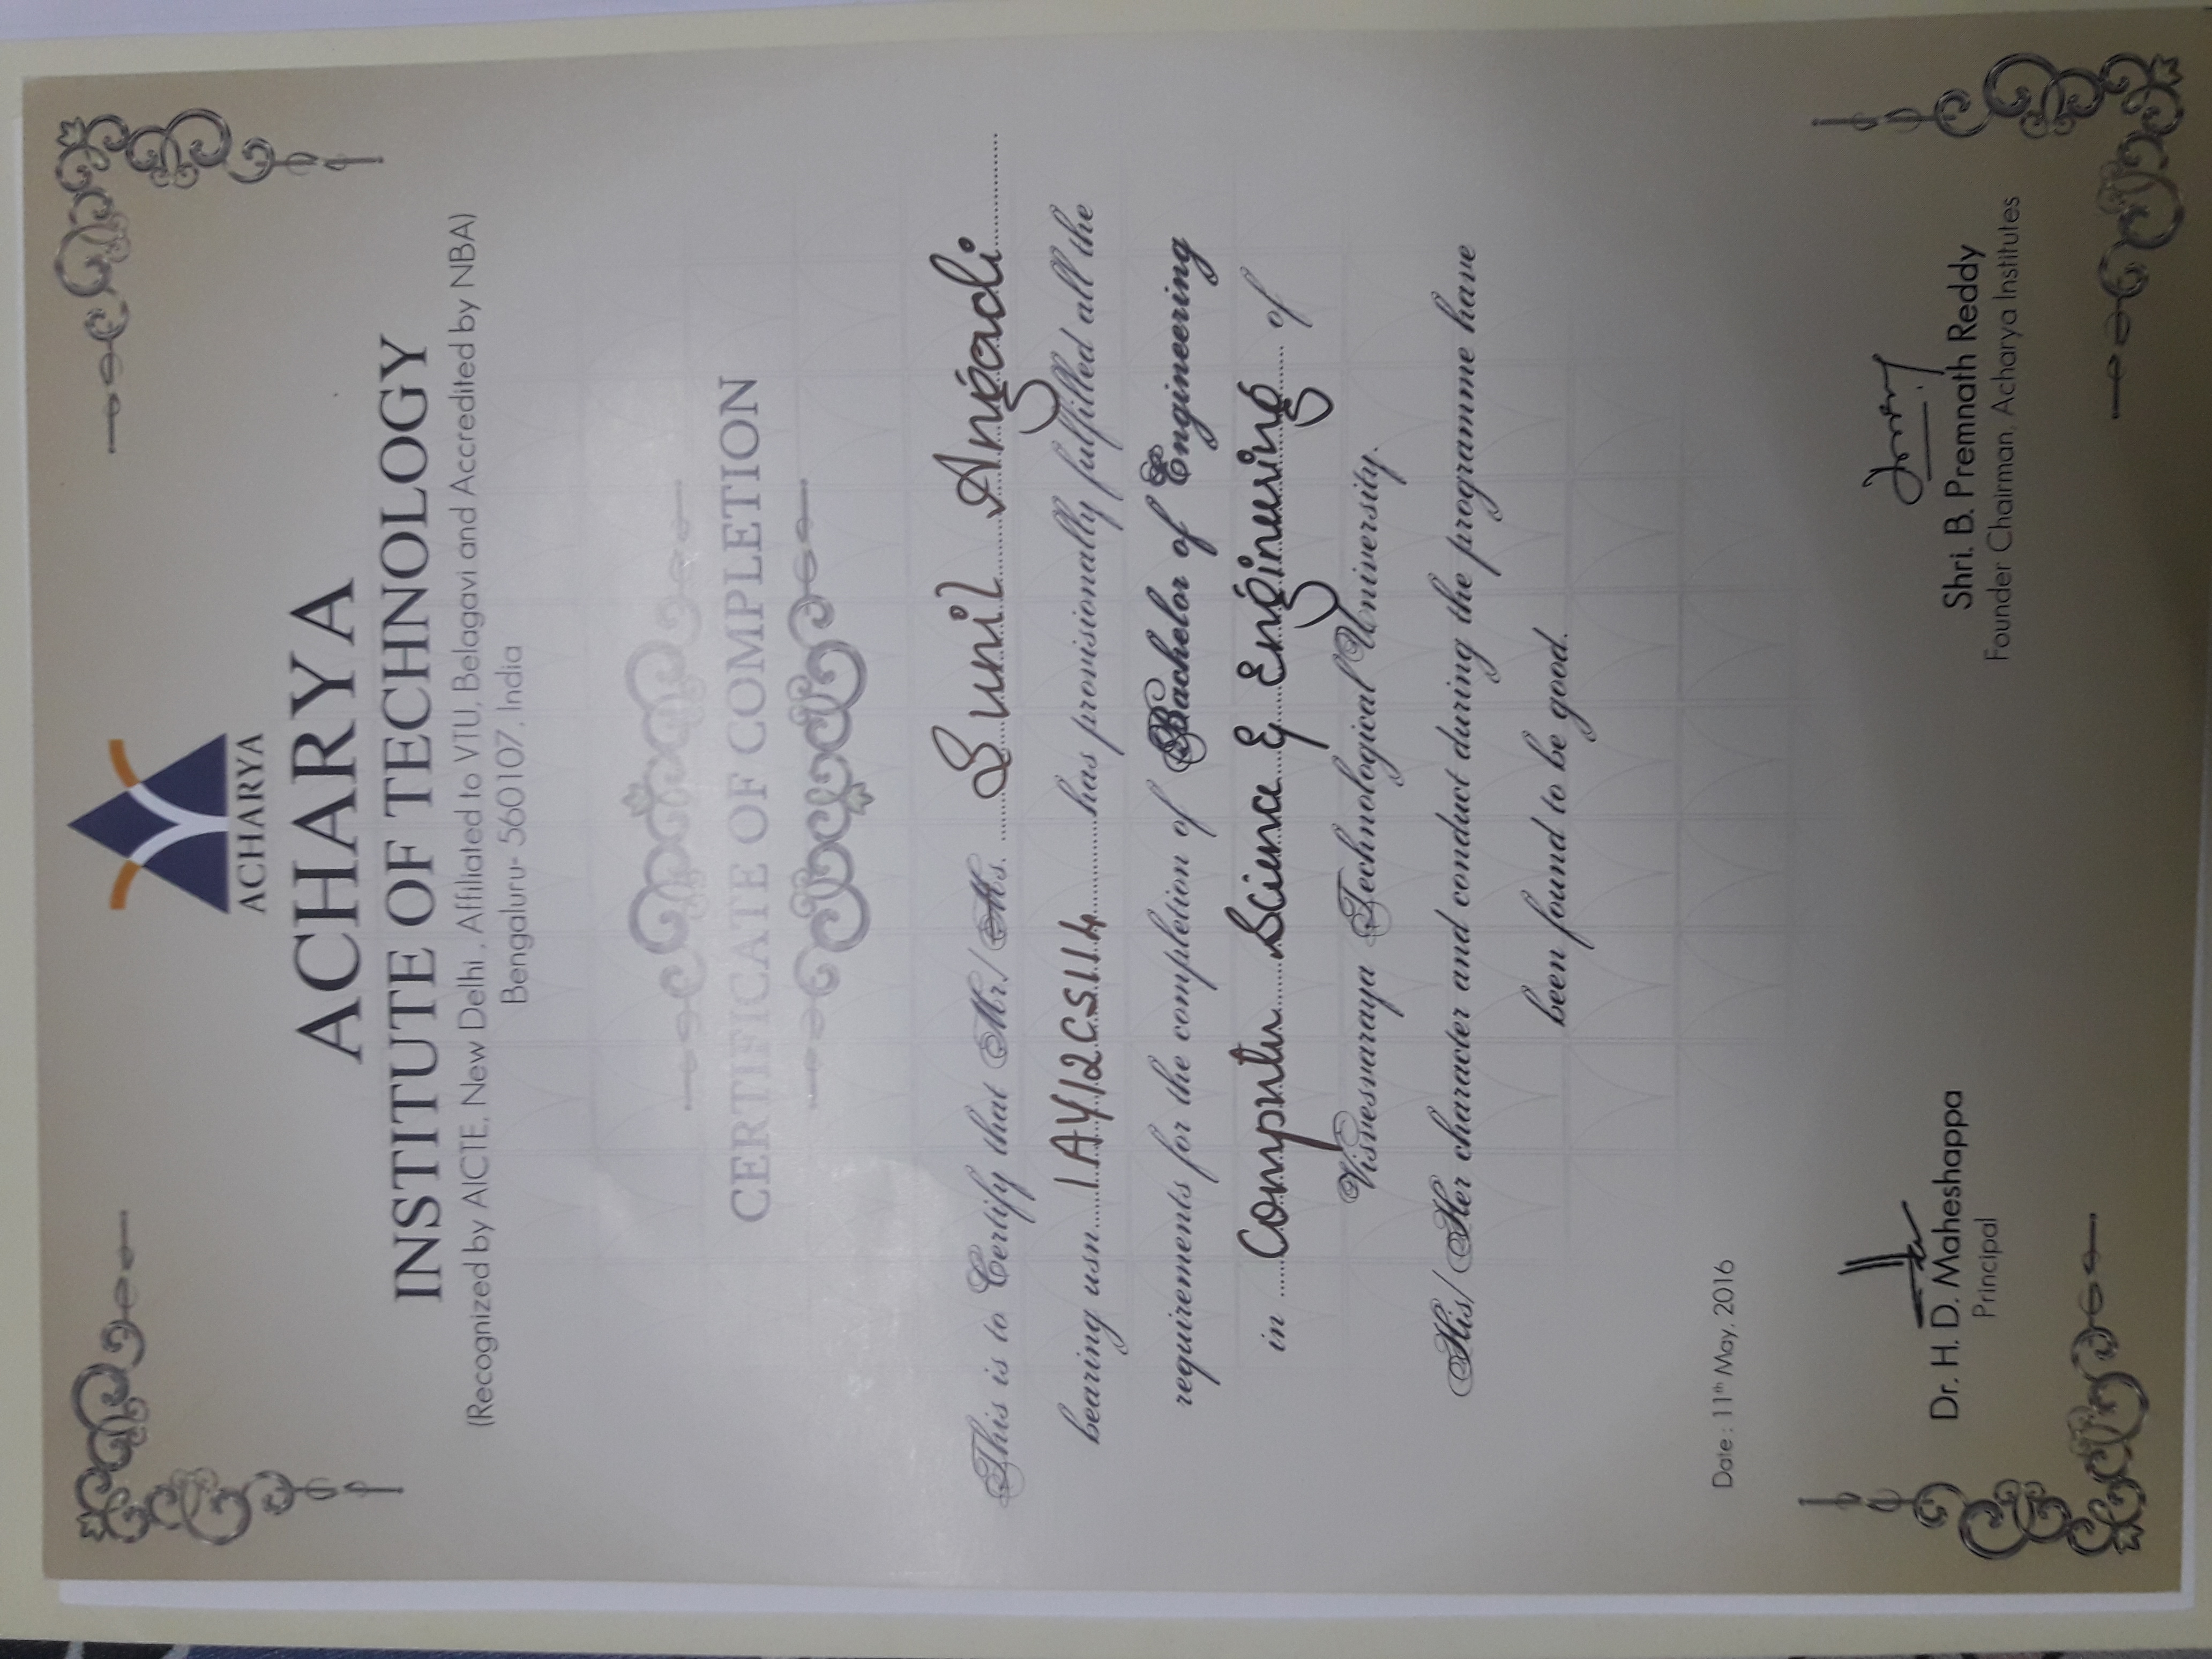 ACHARYA
ACHARYA
INSTITUTE OF TECHNOLOGY
(Recognized by AICTE, New Delhi , Affiliated to VTU, Belagavi and Accredited by NBA)
Bengaluru- 560107, India
CERTIFICATE OF COMPLETION
This is to Certify that Mr/ Ms. Sunil Angadi
bearing usn 1AY12CS114 has provisionally fulfilled all the
requirements for the completion of Bachelor of Engineering
in Computer Science & Engineering of
Visvesvaraya Technological University.
His/ Her character and conduct during the programme have
been found to be good.
Date : 11th May, 2016
Dr. H. D. Maheshappa
Principal
Shri. B. Premnath Reddy
Founder Chairman, Acharya Institutes